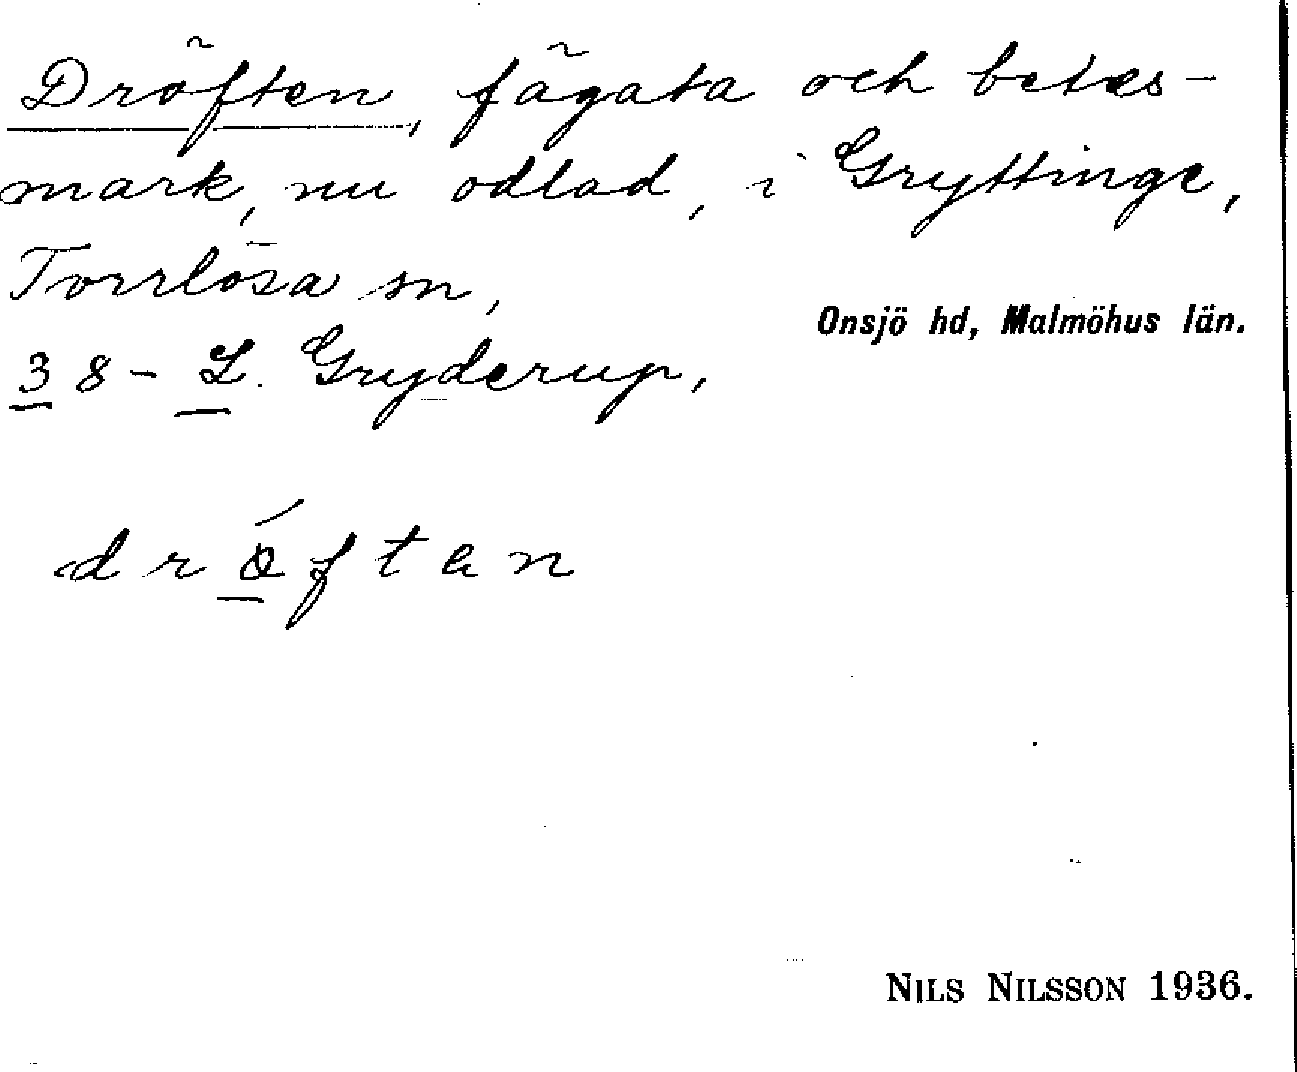 Dröften, fägata och betes-
mark, nu odlad, i Gryttinge,
Torrlösa sn,
Onsjö hd, Malmöhus län.
38 - L. Gryderup,
dróften
NILS NILSSON 1936.